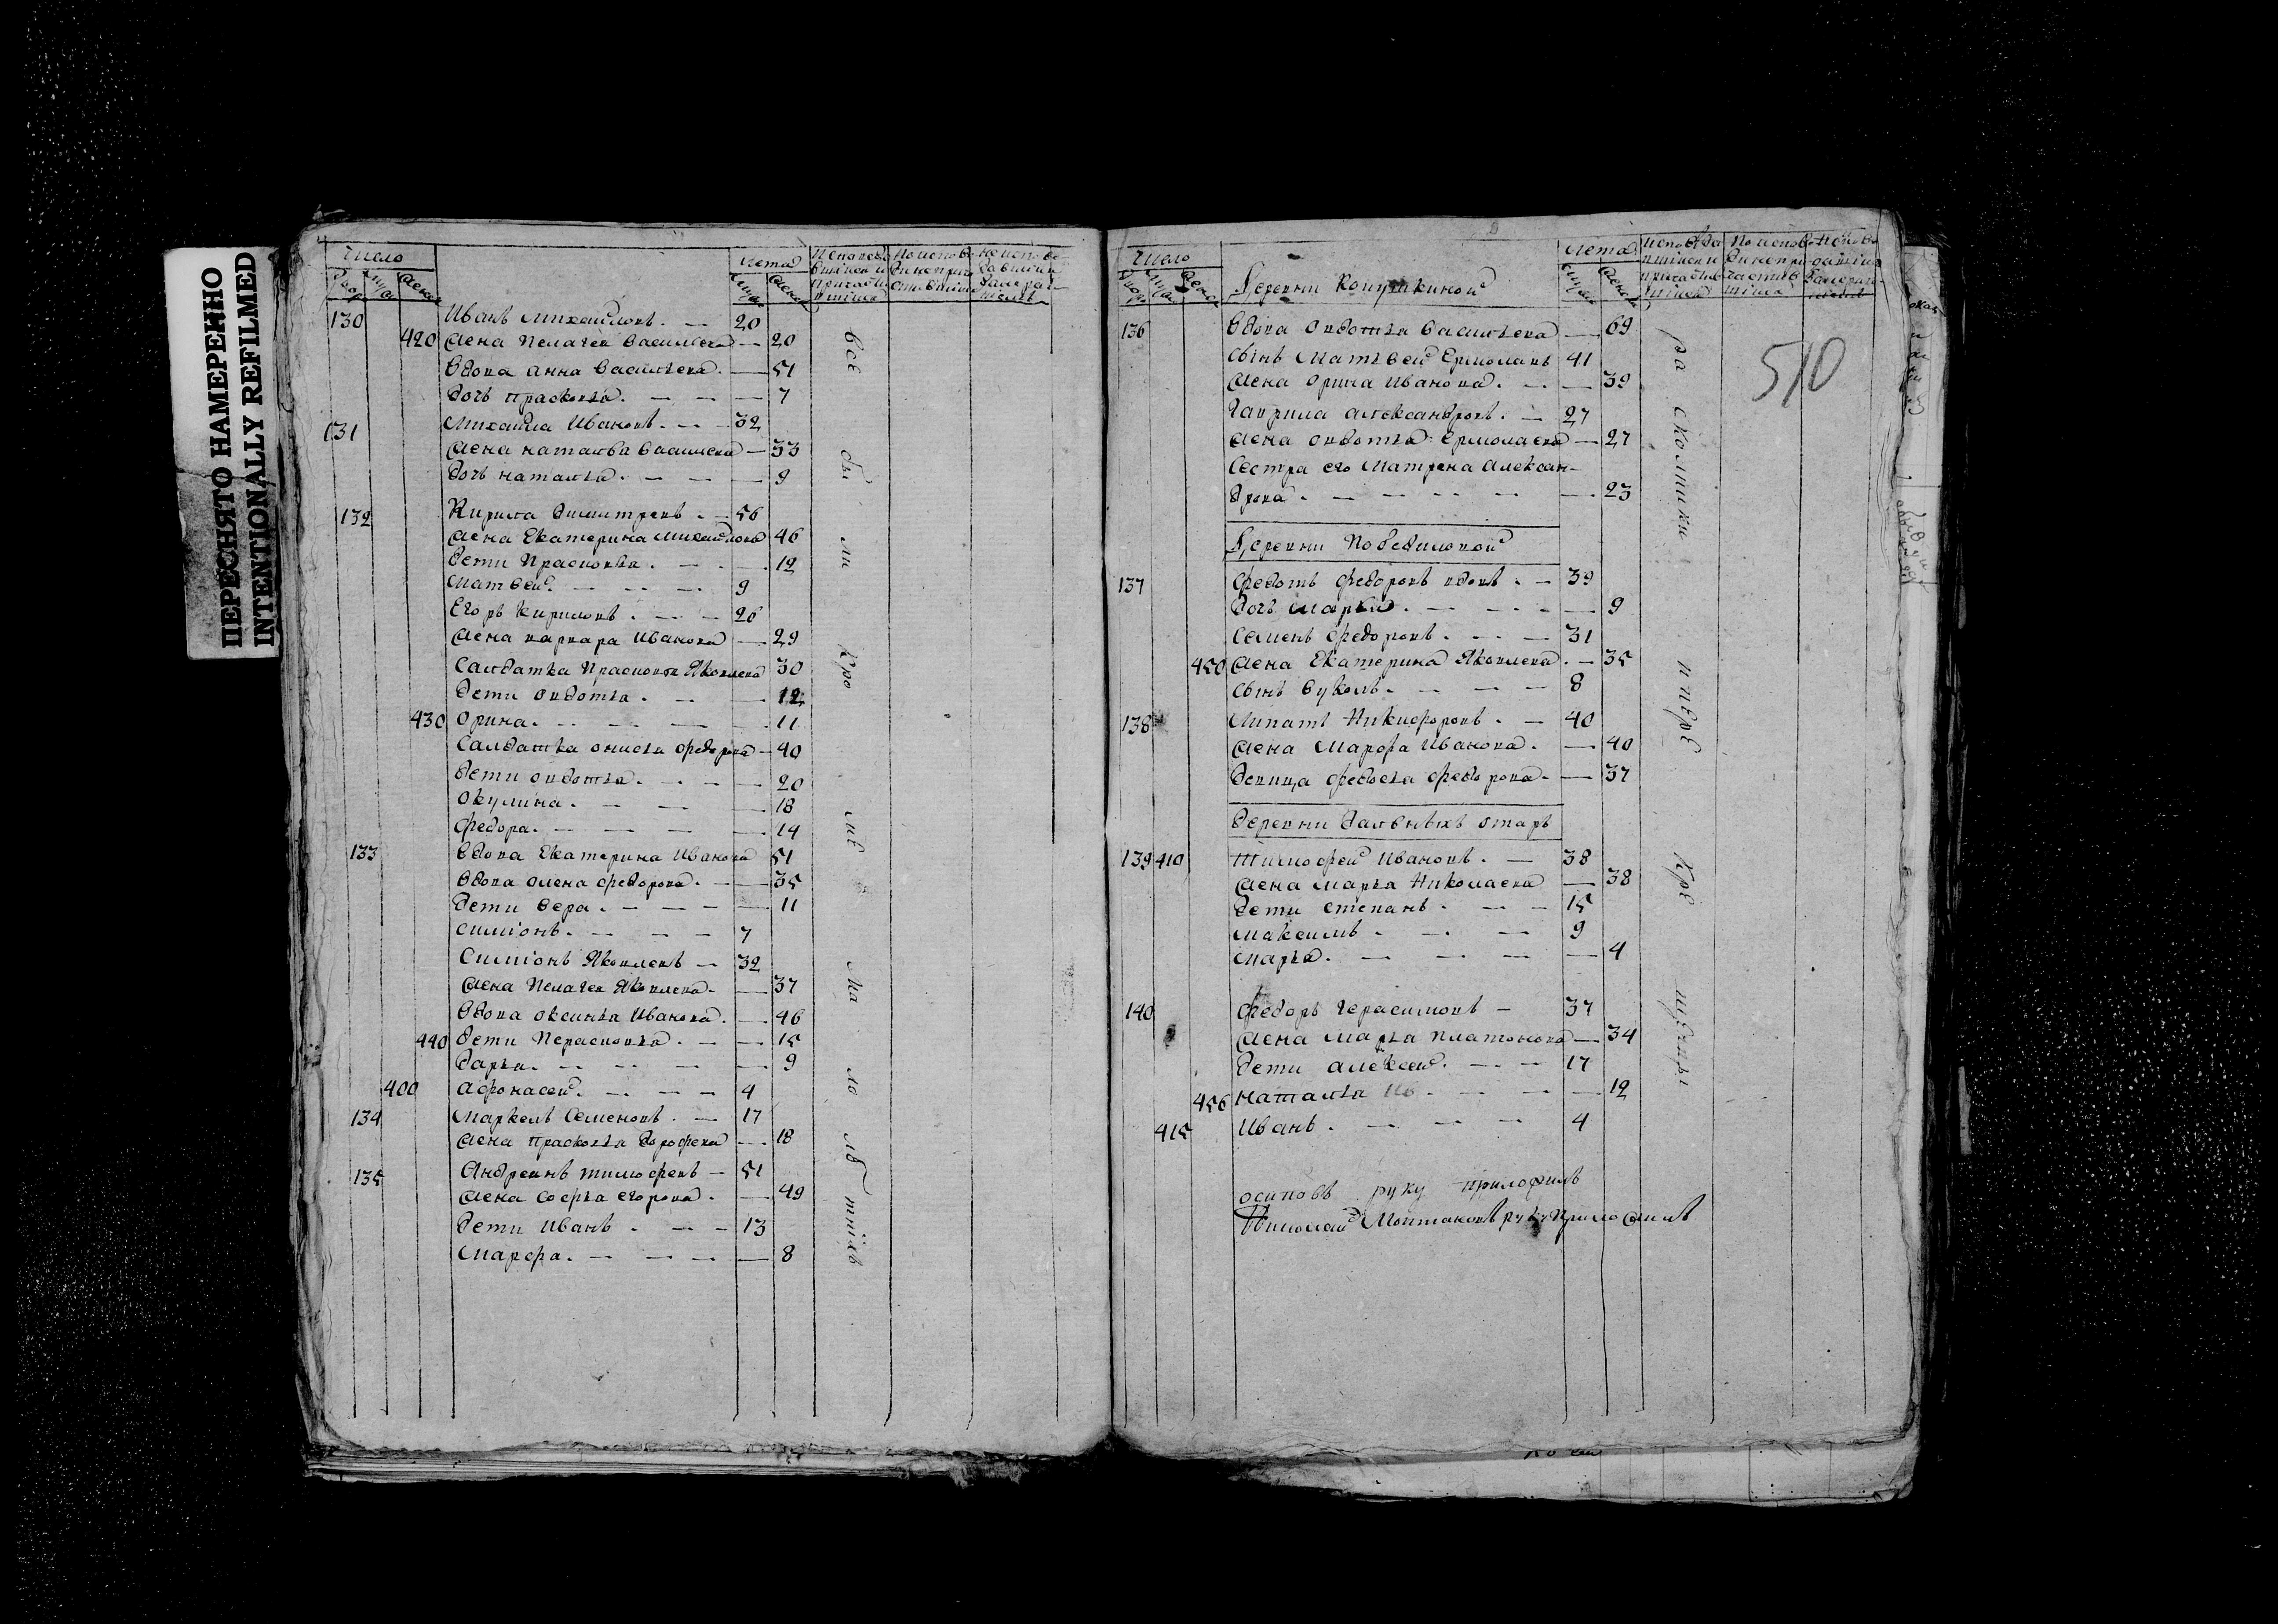 ПЕРЕСНЯТО НАМЕРЕННО
INTENTIONALLY REFILMED
Число
Лета
130 Иванъ Михаиловъ. — 20
420 Жена Пелагея Васильева — 20
Вдова Анна Васильева. — 51
Дочь Прасковья. — — — 7
131 Михаила Ивановъ. — — 32
Жена Наталья Васильева — 33
Дочь Наталья. — — — 9
132 Кирила Димитревъ. — 56
Жена Екатерина Михайлова 46
Дети Прасковья. — — 12
Матвей. — — — 9
Егоръ Кириловъ. — — 26
Жена Варвара Иванова — 29
Салдатка Прасковья Яковлева 30
Дети Овдотья. — — 12
430 Орина. — — — — 11
Салдатка Онисья Федорова — 40
Дети Овдотья. — — — 20
Окулина. — — — 18
Федора. — — — — 14
133 Вдова Екатерина Иванова 51
Вдова Олена Федорова. — — 35
Дети Вера. — — — — 11
Симіонъ. — — — — 7
Симіонъ Яковлевъ — 32
Жена Пелагея Яковлева. — 37
Вдова Оксинья Иванова. — 46
440 Дети Перасковья. — — 15
Дарья. — — — — 9
400 Афонасей. — — — — 4
134 Маркелъ Семеновъ. — 17
Жена Прасковья Дорофева — 18
135 Андреянъ Тимофевъ — 51
Жена Софья Егорова. — 49
Дети Иванъ. — — — 13
Марфа. — — — — 8
Все бы ли кро ме ма ло лѣ тнихъ
Число
Лета
Деревни Копушкиной
136 Вдова Овдотья Васильева — 69
Сынъ Матьвей Ермолаевъ 41
Жена Орина Иванова. — — 39
Гаврила Александровъ. — 27
Жена Овдотья Ермолаева — 27
Сестра его Матрена Алексан-
дрова. — — — — — 23
510
Деревни Победиловой
137 Федотъ Федоровъ вдовъ. — 39
Дочь Марья. — — — — 9
Семенъ Федоровъ. — — — 31
450 Жена Екатерина Яковлева. — 35
Сынъ Вуколъ. — — — — 8
138 Липатъ Никифоровъ. — 40
Жена Марфа Иванова. — 40
Девица Федосья Федорова. — 37
Деревни Дальныхъ Отаръ
139 410 Тимофей Ивановъ. — 38
Жена Марья Николаева — 38
Дети Степанъ. — — 15
Максимъ. — — — 9
Марья. — — — — — 4
140 Федоръ Герасимовъ — 37
Жена Марья Платонова — 34
Дети Алексей. — — 17
456 Наталья — — — — 12
415 Иванъ. — — — — 4
ра скольники и нвре кре щены
Осиповъ руку приложилъ
Николай руку приложилъ